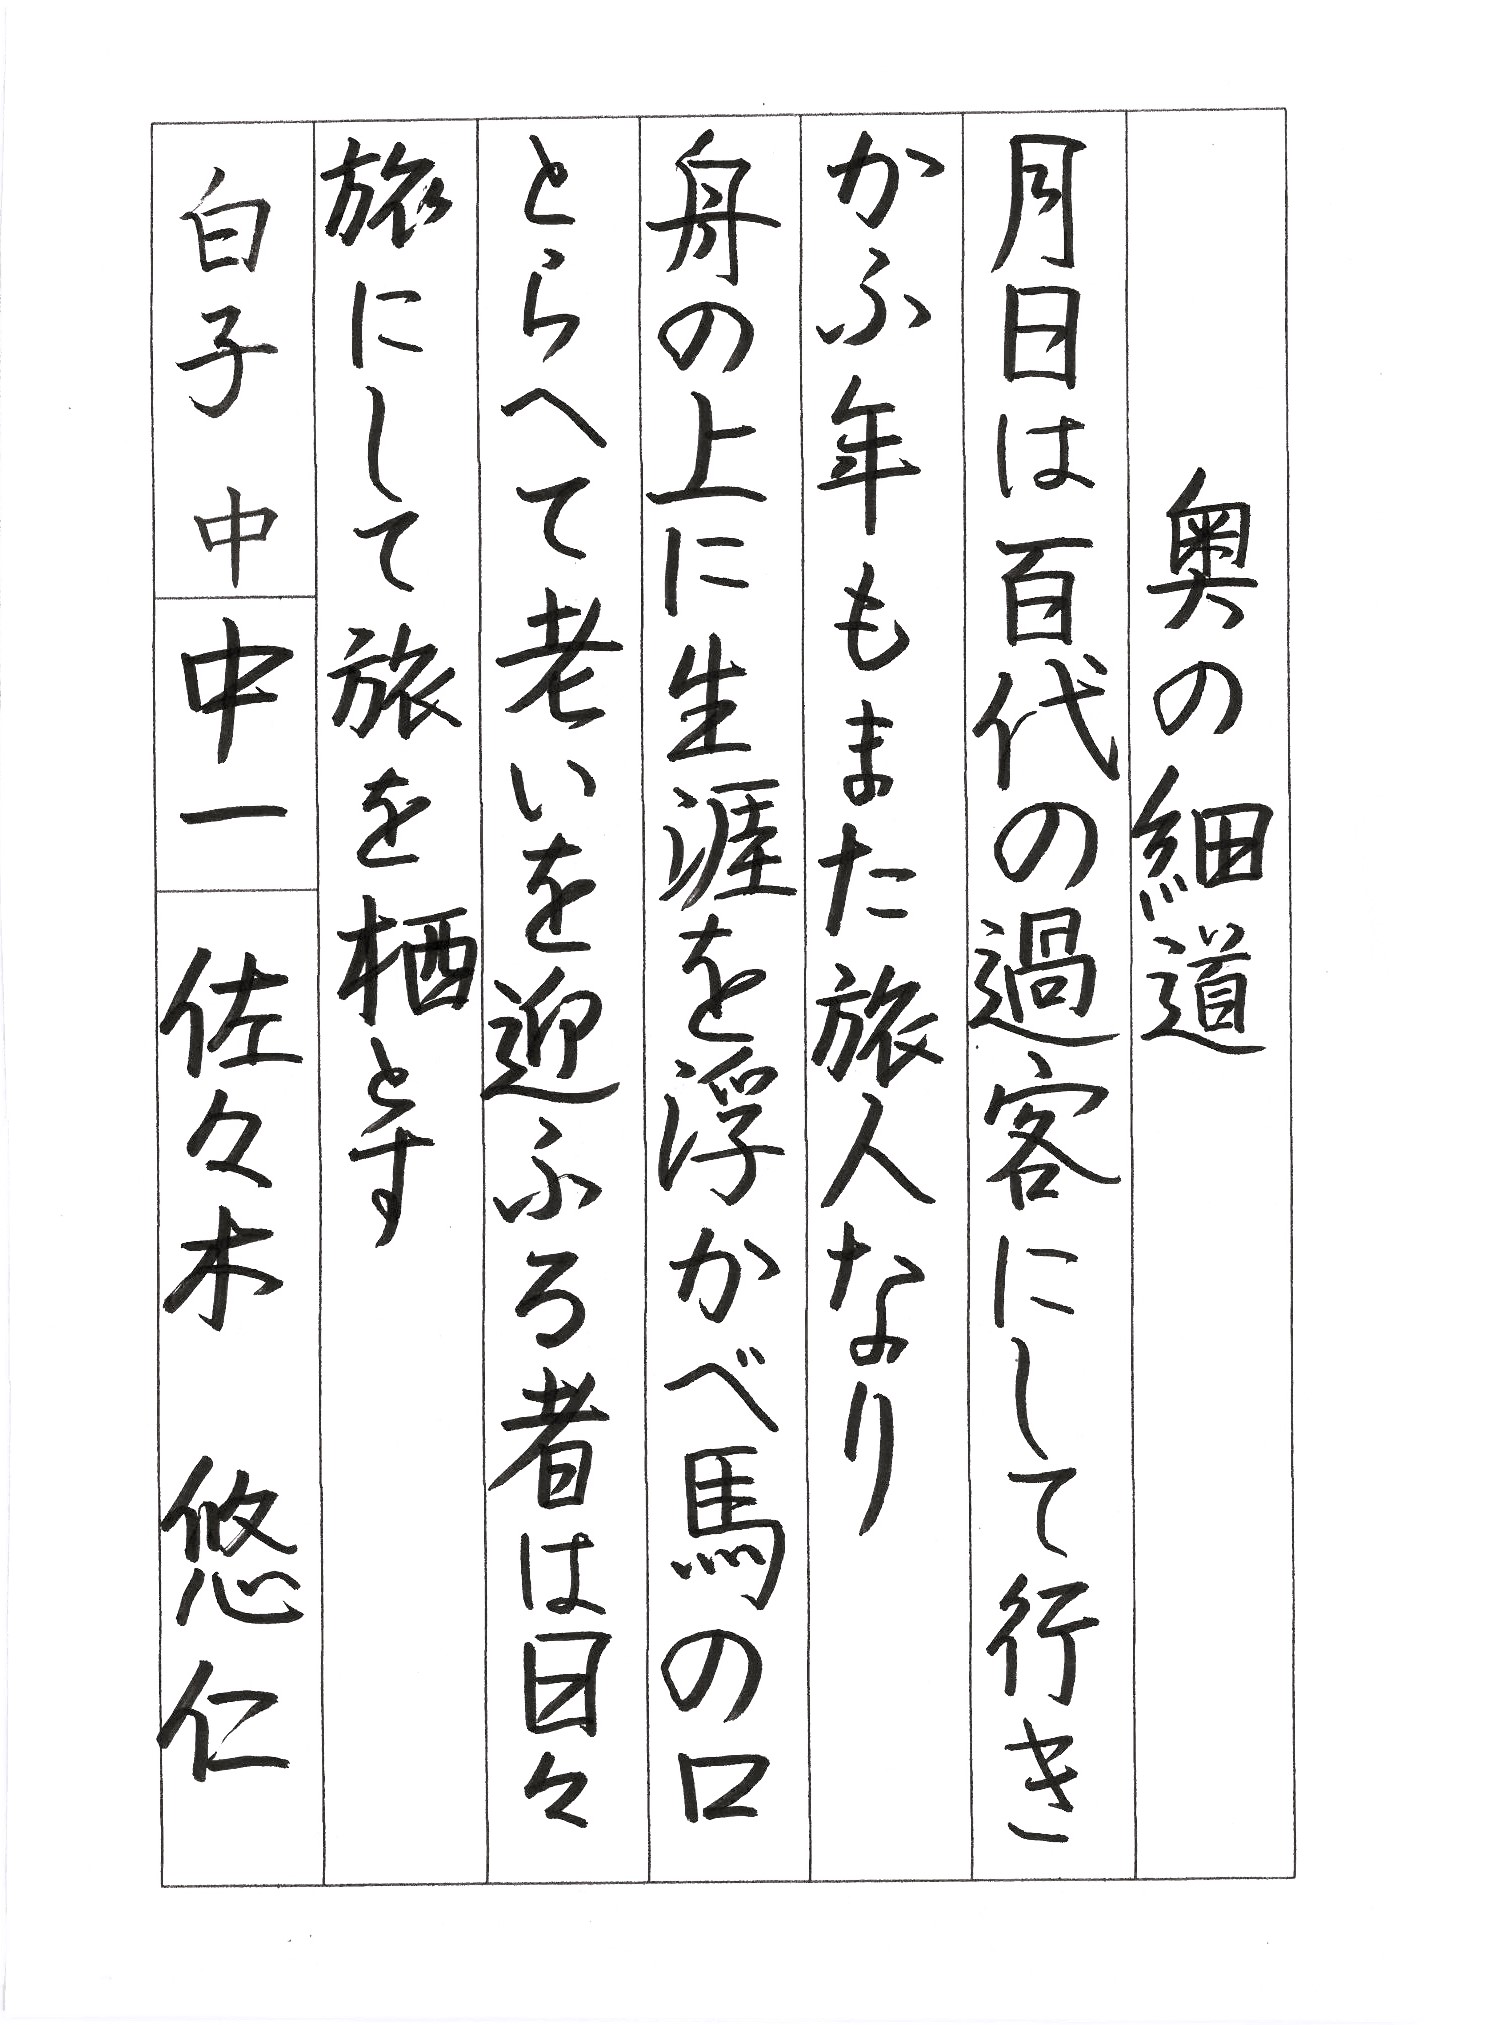 奥の細道
月日は百代の過客にして行き
かふ年もまた旅人なり
舟の上に生涯を浮かべ馬の口
とらへて老いを迎ふる者は日々
旅にして旅を栖とす
白子中 中一 佐々木 悠仁